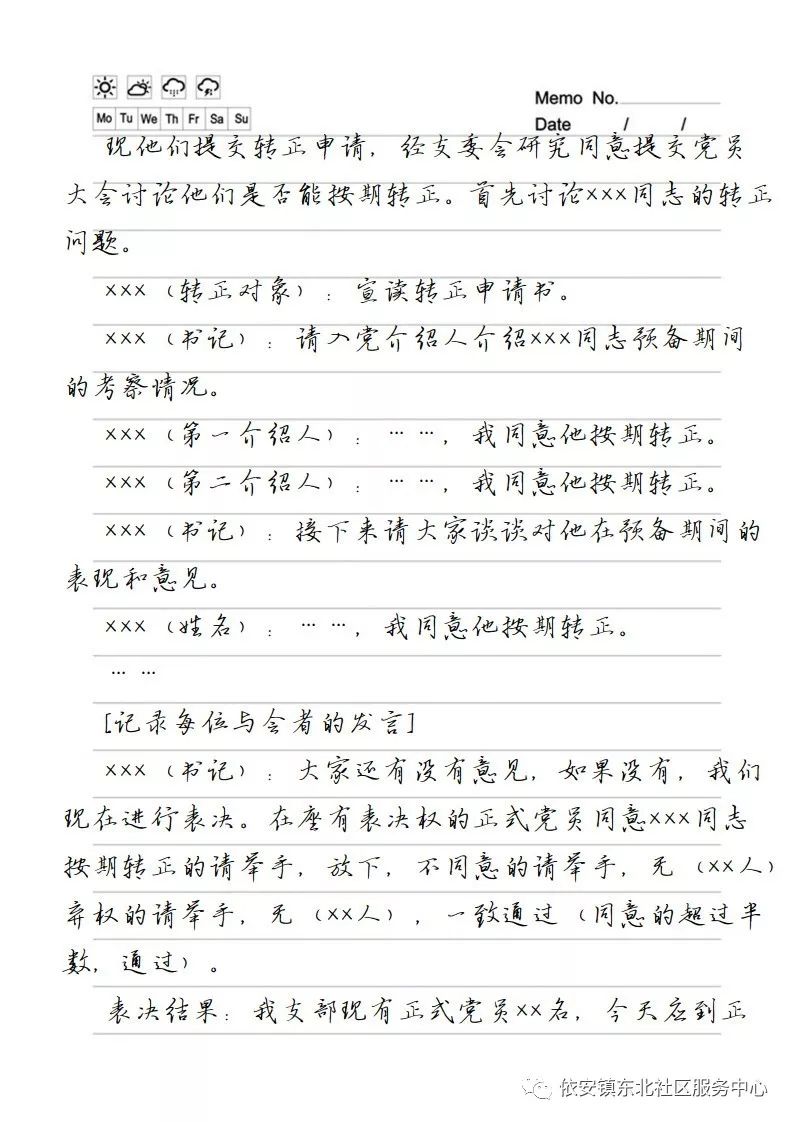 Mo Tu We Th Fr Sa Su
Memo No.
Date / /
现他们提交转正申请，经支委会研究同意提交党员
大会讨论他们是否能按期转正。首先讨论×××同志的转正
问题。
×××（转正对象）：宣读转正申请书。
×××（书记）：请入党介绍人介绍×××同志预备期间
的考察情况。
×××（第一介绍人）：… …，我同意他按期转正。
×××（第二介绍人）：… …，我同意他按期转正。
×××（书记）：接下来请大家谈谈对他在预备期间的
表现和意见。
×××（姓名）：… …，我同意他按期转正。
… …
[记录每位与会者的发言]
×××（书记）：大家还有没有意见，如果没有，我们
现在进行表决。在座有表决权的正式党员同意×××同志
按期转正的请举手，放下，不同意的请举手，无（××人）
弃权的请举手，无（××人），一致通过（同意的超过半
数，通过）。
表决结果：我支部现有正式党员××名，今天应到正
依安镇东北社区服务中心